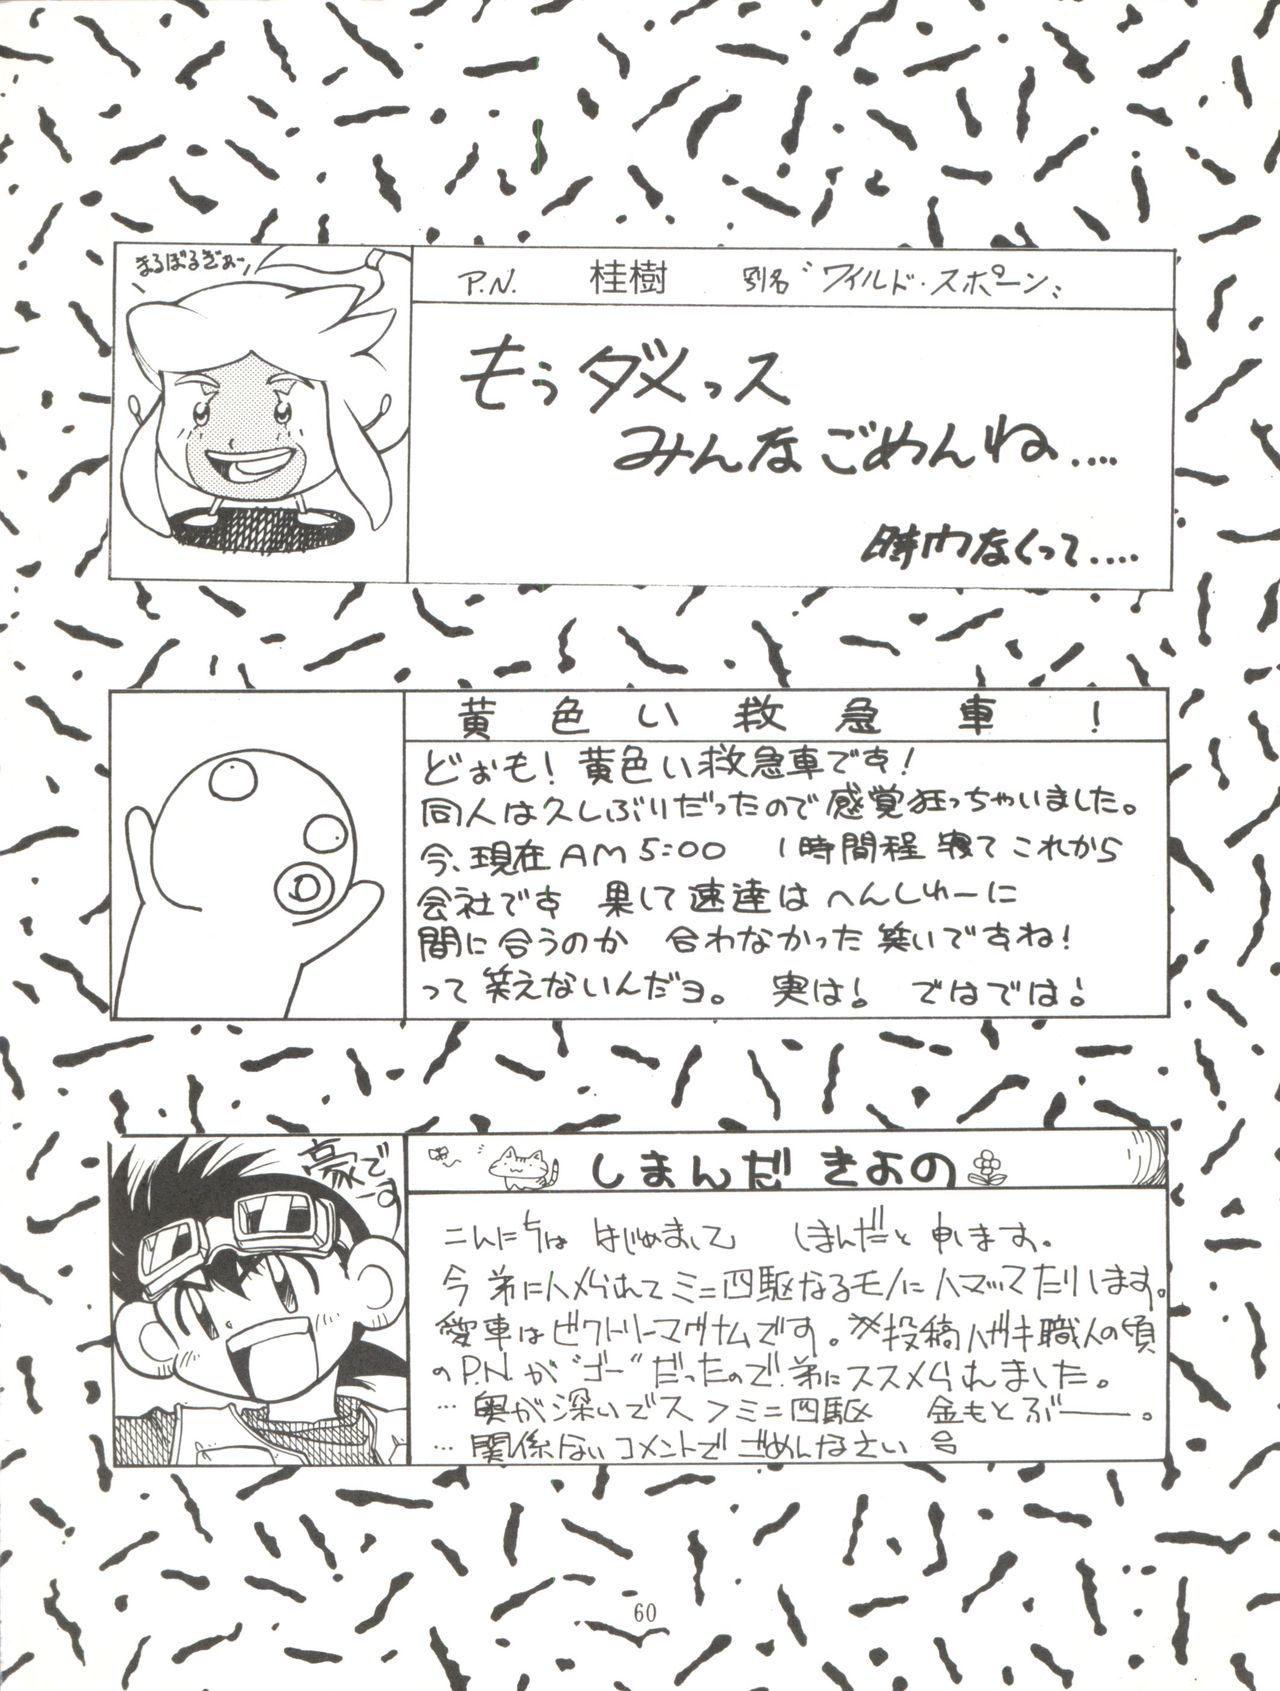 まるぼるぎぁーッ
P.N. 桂樹 別名〝ワイルド・スポーン〟
もぅダメっス
みんなごめんね....
時間なくって....
黄色い救急車!
どぉも!黄色い救急車です!
同人は久しぶりだったので感覚狂っちゃいました。
今、現在AM5:00 1時間程寝てこれから
会社です 果して速達はへんしゅーに
間に合うのか 合わなかった笑いですね!
って笑えないんだヨ。 実は! ではでは!
豪でーす
しまんだきよの
こんにちは はじめまして しまんだと申します。
今弟にハメられてミニ四駆なるモノにハマッてたりします。
愛車はビクトリーマグナムです。※投稿ハガキ職人の頃
のP.N.が〝ゴー〟だったので弟にススメられました。
…奥が深いでスっミニ四駆 金もとぶーー。
…関係ないコメントでごめんなさい
60